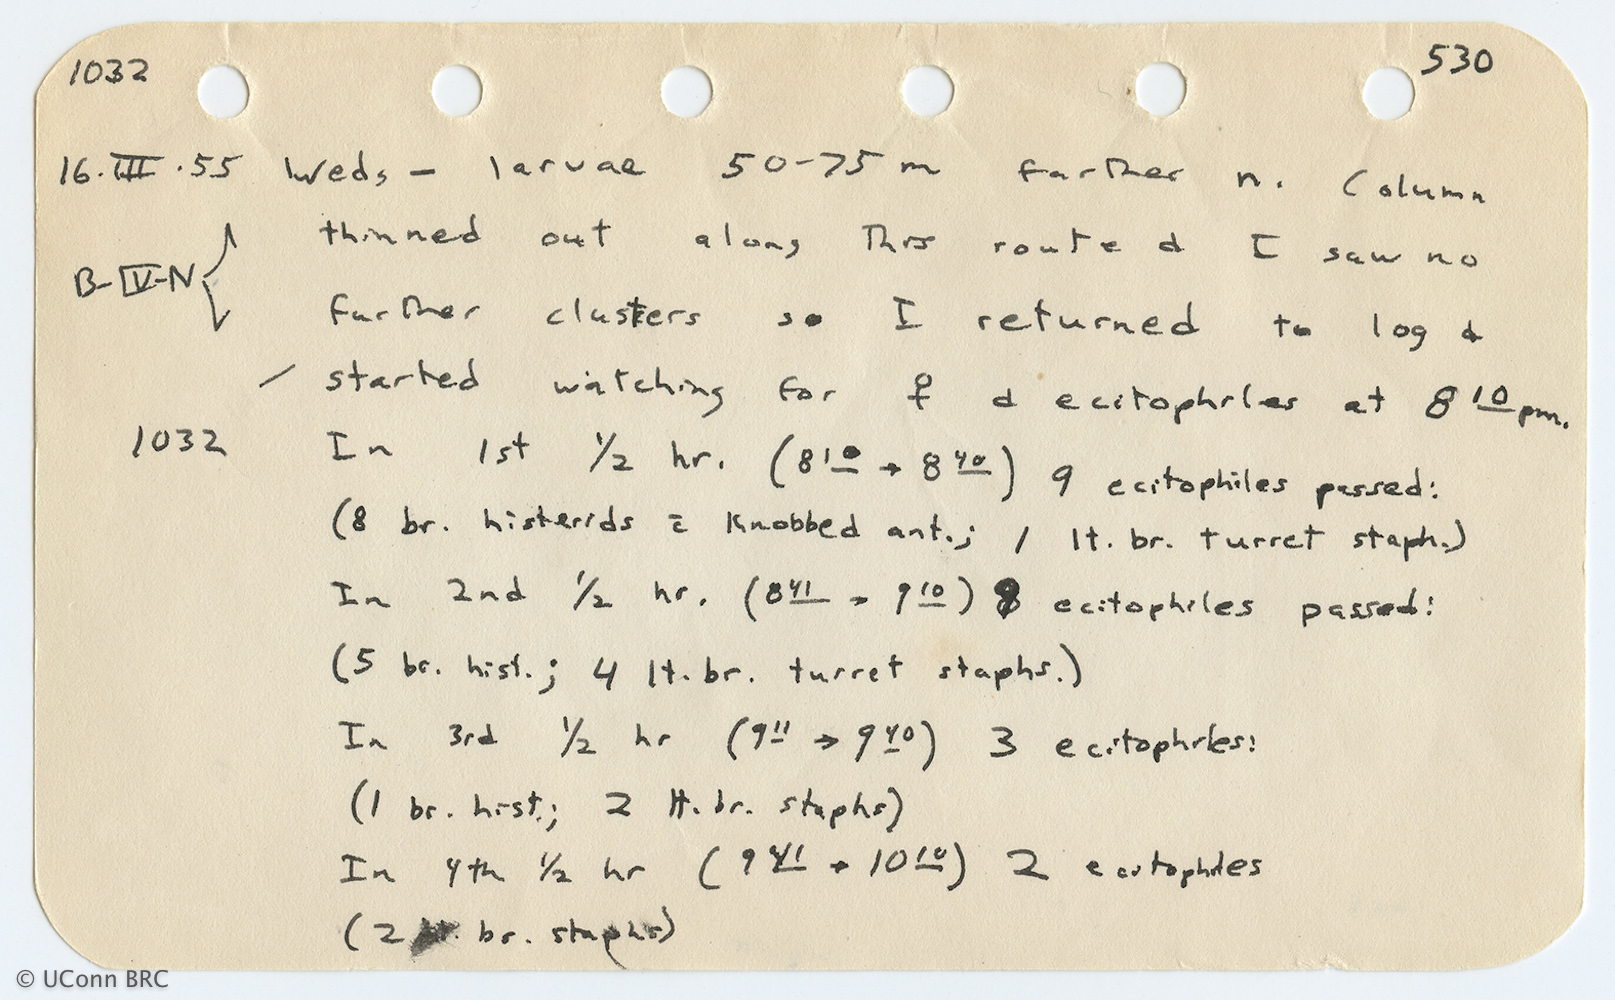 1032 530
16.III.55 Weds – larvae 50-75 m farther n. Column
thinned out along this route & I saw no
B-IV-N
further clusters so I returned to log &
started watching for ♀ & ecitophiles at 8 10 pm.
1032 In 1st 1/2 hr. (8 10 → 8 40) 9 ecitophiles passed:
(8 br. histerids c̄ knobbed ant.; 1 lt. br. turret staph.)
In 2nd 1/2 hr. (8 41 → 9 10) ecitophiles passed:
(5 br. hist.; 4 lt. br. turret staphs.)
In 3rd 1/2 hr (9 11 → 9 40) 3 ecitophiles:
(1 br. hist.; 2 lt. br. staphs)
In 4th 1/2 hr (9 41 → 10 10) 2 ecitophiles
(2 br. staphs)
© UConn BRC